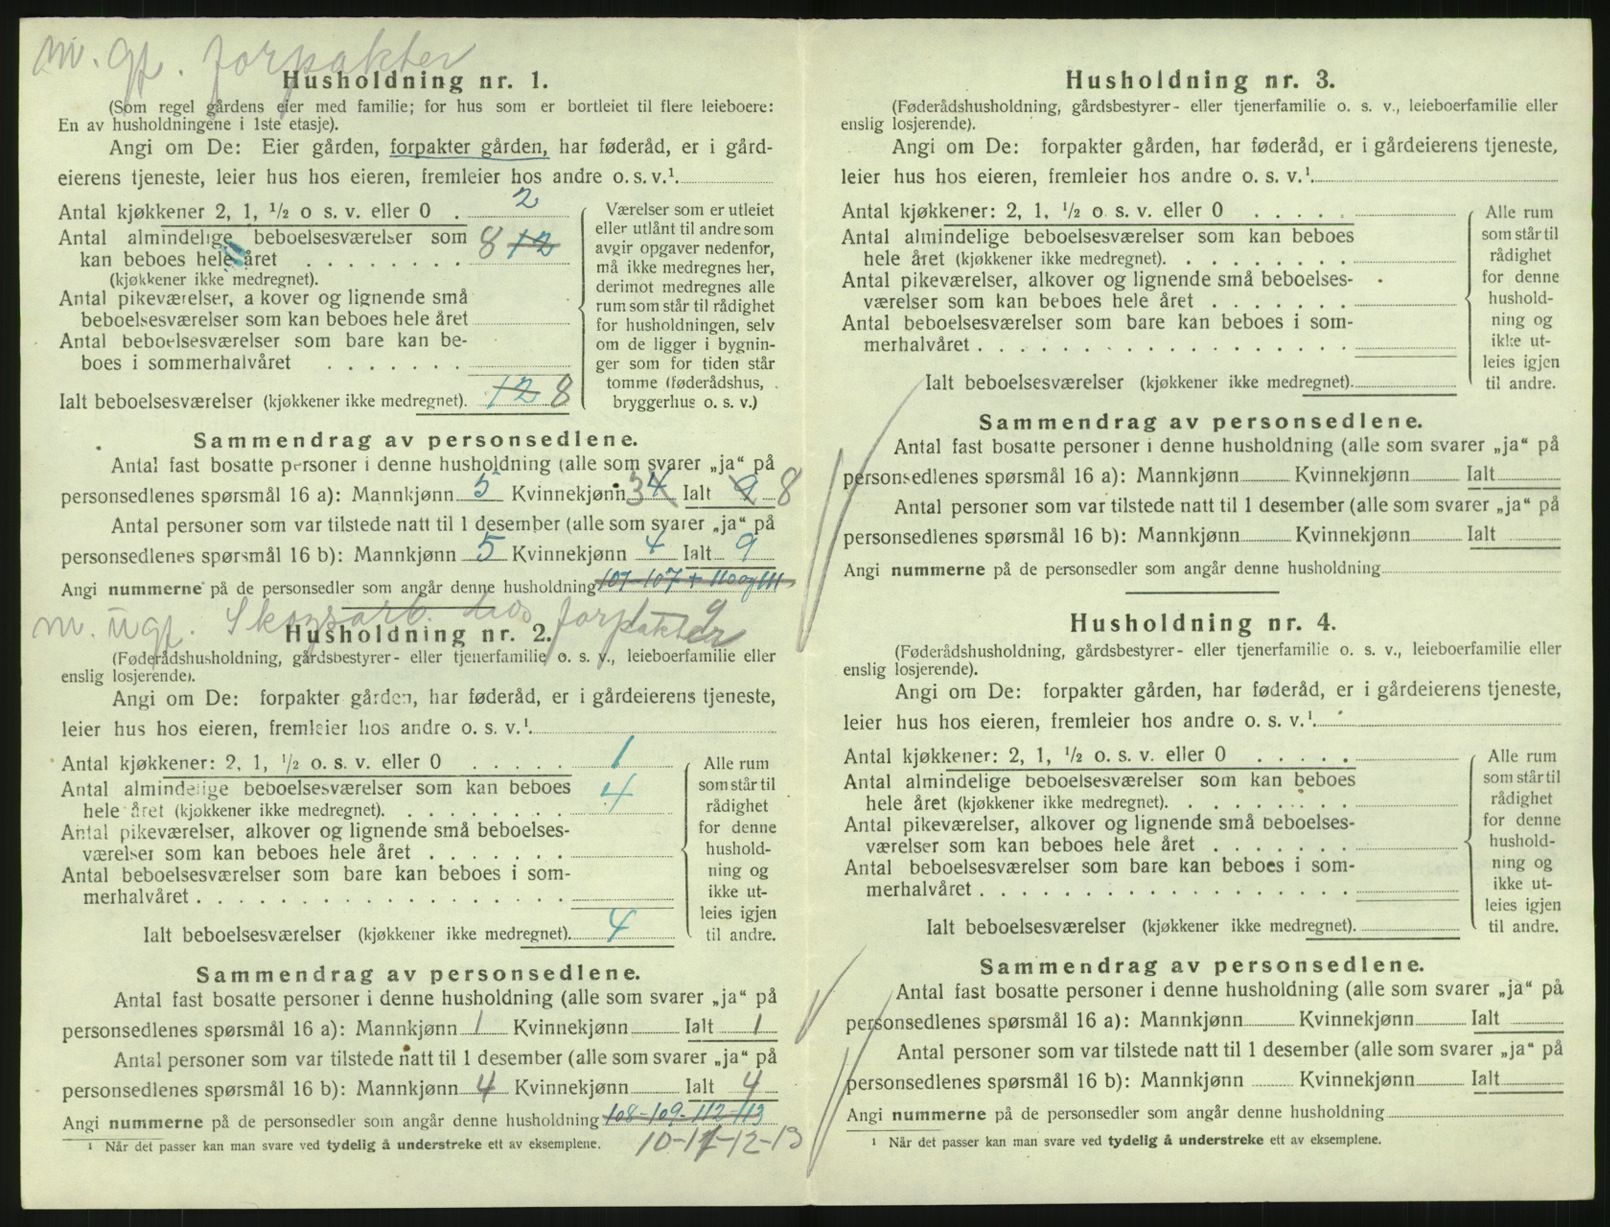 m. gf. forpakter
Husholdning nr. 1.
(Som regel gårdens eier med familie; for hus som er bortleiet til flere leieboere:
En av husholdningene i 1ste etasje).
Angi om De: Eier gården, forpakter gården, har føderåd, er i gård-
eierens tjeneste, leier hus hos eieren, fremleier hos andre o. s. v.¹
Antal kjøkkener 2, 1, ½ o s. v. eller 0 . 2
Antal almindelige beboelsesværelser som
kan beboes hele året . . . . . . . . 8 12
(kjøkkener ikke medregnet).
Antal pikeværelser, a kover og lignende små
beboelsesværelser som kan beboes hele året
Antal beboelsesværelser som bare kan be-
boes i sommerhalvåret . . . . . . .
Ialt beboelsesværelser (kjøkkener ikke medregnet). 12 8
Værelser som er utleiet
eller utlånt til andre som
avgir opgaver nedenfor,
må ikke medregnes her,
derimot medregnes alle
rum som står til rådighet
for husholdningen, selv
om de ligger i bygnin-
ger som for tiden står
tomme (føderådshus,
bryggerhus o. s. v.)
Sammendrag av personsedlene.
Antal fast bosatte personer i denne husholdning (alle som svarer „ja“ på
personsedlenes spørsmål 16 a): Mannkjønn 5 Kvinnekjønn 3 4 Ialt 9 8
Antal personer som var tilstede natt til 1 desember (alle som svarer „ja“ på
personsedlenes spørsmål 16 b): Mannkjønn 5 Kvinnekjønn 4 Ialt 9
Angi nummerne på de personsedler som angår denne husholdning 101-107 + 110 og 111
1 — 9
m. ugf. Skogsarb. hos forpakter
Husholdning nr. 2.
(Føderådshusholdning, gårdsbestyrer- eller tjenerfamilie o. s. v., leieboerfamilie eller
enslig losjerende).
Angi om De: forpakter gården, har føderåd, er i gårdeierens tjeneste,
leier hus hos eieren, fremleier hos andre o. s. v.¹
Antal kjøkkener: 2, 1, ½ o. s. v. eller 0 . . . . . 1
Antal almindelige beboelsesværelser som kan beboes
hele året (kjøkkener ikke medregnet). . . . . . . . . 4
Antal pikeværelser, alkover og lignende små beboelses-
værelser som kan beboes hele året . . . . . . .
Antal beboelsesværelser som bare kan beboes i som-
merhalvåret . . . . . . . . . . . . . . . . . .
Ialt beboelsesværelser (kjøkkener ikke medregnet). 4
Alle rum
som står til
rådighet
for denne
hushold-
ning og
ikke ut-
leies igjen
til andre.
Sammendrag av personsedlene.
Antal fast bosatte personer i denne husholdning (alle som svarer „ja“ på
personsedlenes spørsmål 16 a): Mannkjønn 1 Kvinnekjønn Ialt 1
Antal personer som var tilstede natt til 1 desember (alle som svarer „ja“ på
personsedlenes spørsmål 16 b): Mannkjønn 4 Kvinnekjønn Ialt 4
Angi nummerne på de personsedler som angår denne husholdning 108-109-112-113
¹ Når det passer kan man svare ved tydelig å understreke ett av eksemplene.
10-11-12-13
Husholdning nr. 3.
(Føderådshusholdning, gårdsbestyrer- eller tjenerfamilie o. s. v., leieboerfamilie eller
enslig losjerende).
Angi om De: forpakter gården, har føderåd, er i gårdeierens tjeneste,
leier hus hos eieren, fremleier hos andre o. s. v.¹
Antal kjøkkener: 2, 1, ½ o. s. v. eller 0 . . . . .
Antal almindelige beboelsesværelser som kan beboes
hele året (kjøkkener ikke medregnet). . . . . . . . .
Antal pikeværelser, alkover og lignende små beboelses-
værelser som kan beboes hele året . . . . . . .
Antal beboelsesværelser som bare kan beboes i som-
merhalvåret . . . . . . . . . . . . . . . . . .
Ialt beboelsesværelser (kjøkkener ikke medregnet).
Alle rum
som står til
rådighet
for denne
hushold-
ning og
ikke ut-
leies igjen
til andre.
Sammendrag av personsedlene.
Antal fast bosatte personer i denne husholdning (alle som svarer „ja“ på
personsedlenes spørsmål 16 a): Mannkjønn Kvinnekjønn Ialt
Antal personer som var tilstede natt til 1 desember (alle som svarer „ja“ på
personsedlenes spørsmål 16 b): Mannkjønn Kvinnekjønn Ialt
Angi nummerne på de personsedler som angår denne husholdning
Husholdning nr. 4.
(Føderådshusholdning, gårdsbestyrer- eller tjenerfamilie o. s. v., leieboerfamilie eller
enslig losjerende).
Angi om De: forpakter gården, har føderåd, er i gårdeierens tjeneste,
leier hus hos eieren, fremleier hos andre o. s. v.¹
Antal kjøkkener: 2, 1, ½ o. s. v. eller 0 . . . . .
Antal almindelige beboelsesværelser som kan beboes
hele året (kjøkkener ikke medregnet). . . . . . . . .
Antal pikeværelser, alkover og lignende små beboelses-
værelser som kan beboes hele året . . . . . . .
Antal beboelsesværelser som bare kan beboes i som-
merhalvåret . . . . . . . . . . . . . . . . . .
Ialt beboelsesværelser (kjøkkener ikke medregnet).
Alle rum
som står til
rådighet
for denne
hushold-
ning og
ikke ut-
leies igjen
til andre.
Sammendrag av personsedlene.
Antal fast bosatte personer i denne husholdning (alle som svarer „ja“ på
personsedlenes spørsmål 16 a): Mannkjønn Kvinnekjønn Ialt
Antal personer som var tilstede natt til 1 desember (alle som svarer „ja“ på
personsedlenes spørsmål 16 b): Mannkjønn Kvinnekjønn Ialt
Angi nummerne på de personsedler som angår denne husholdning
¹ Når det passer kan man svare ved tydelig å understreke ett av eksemplene.